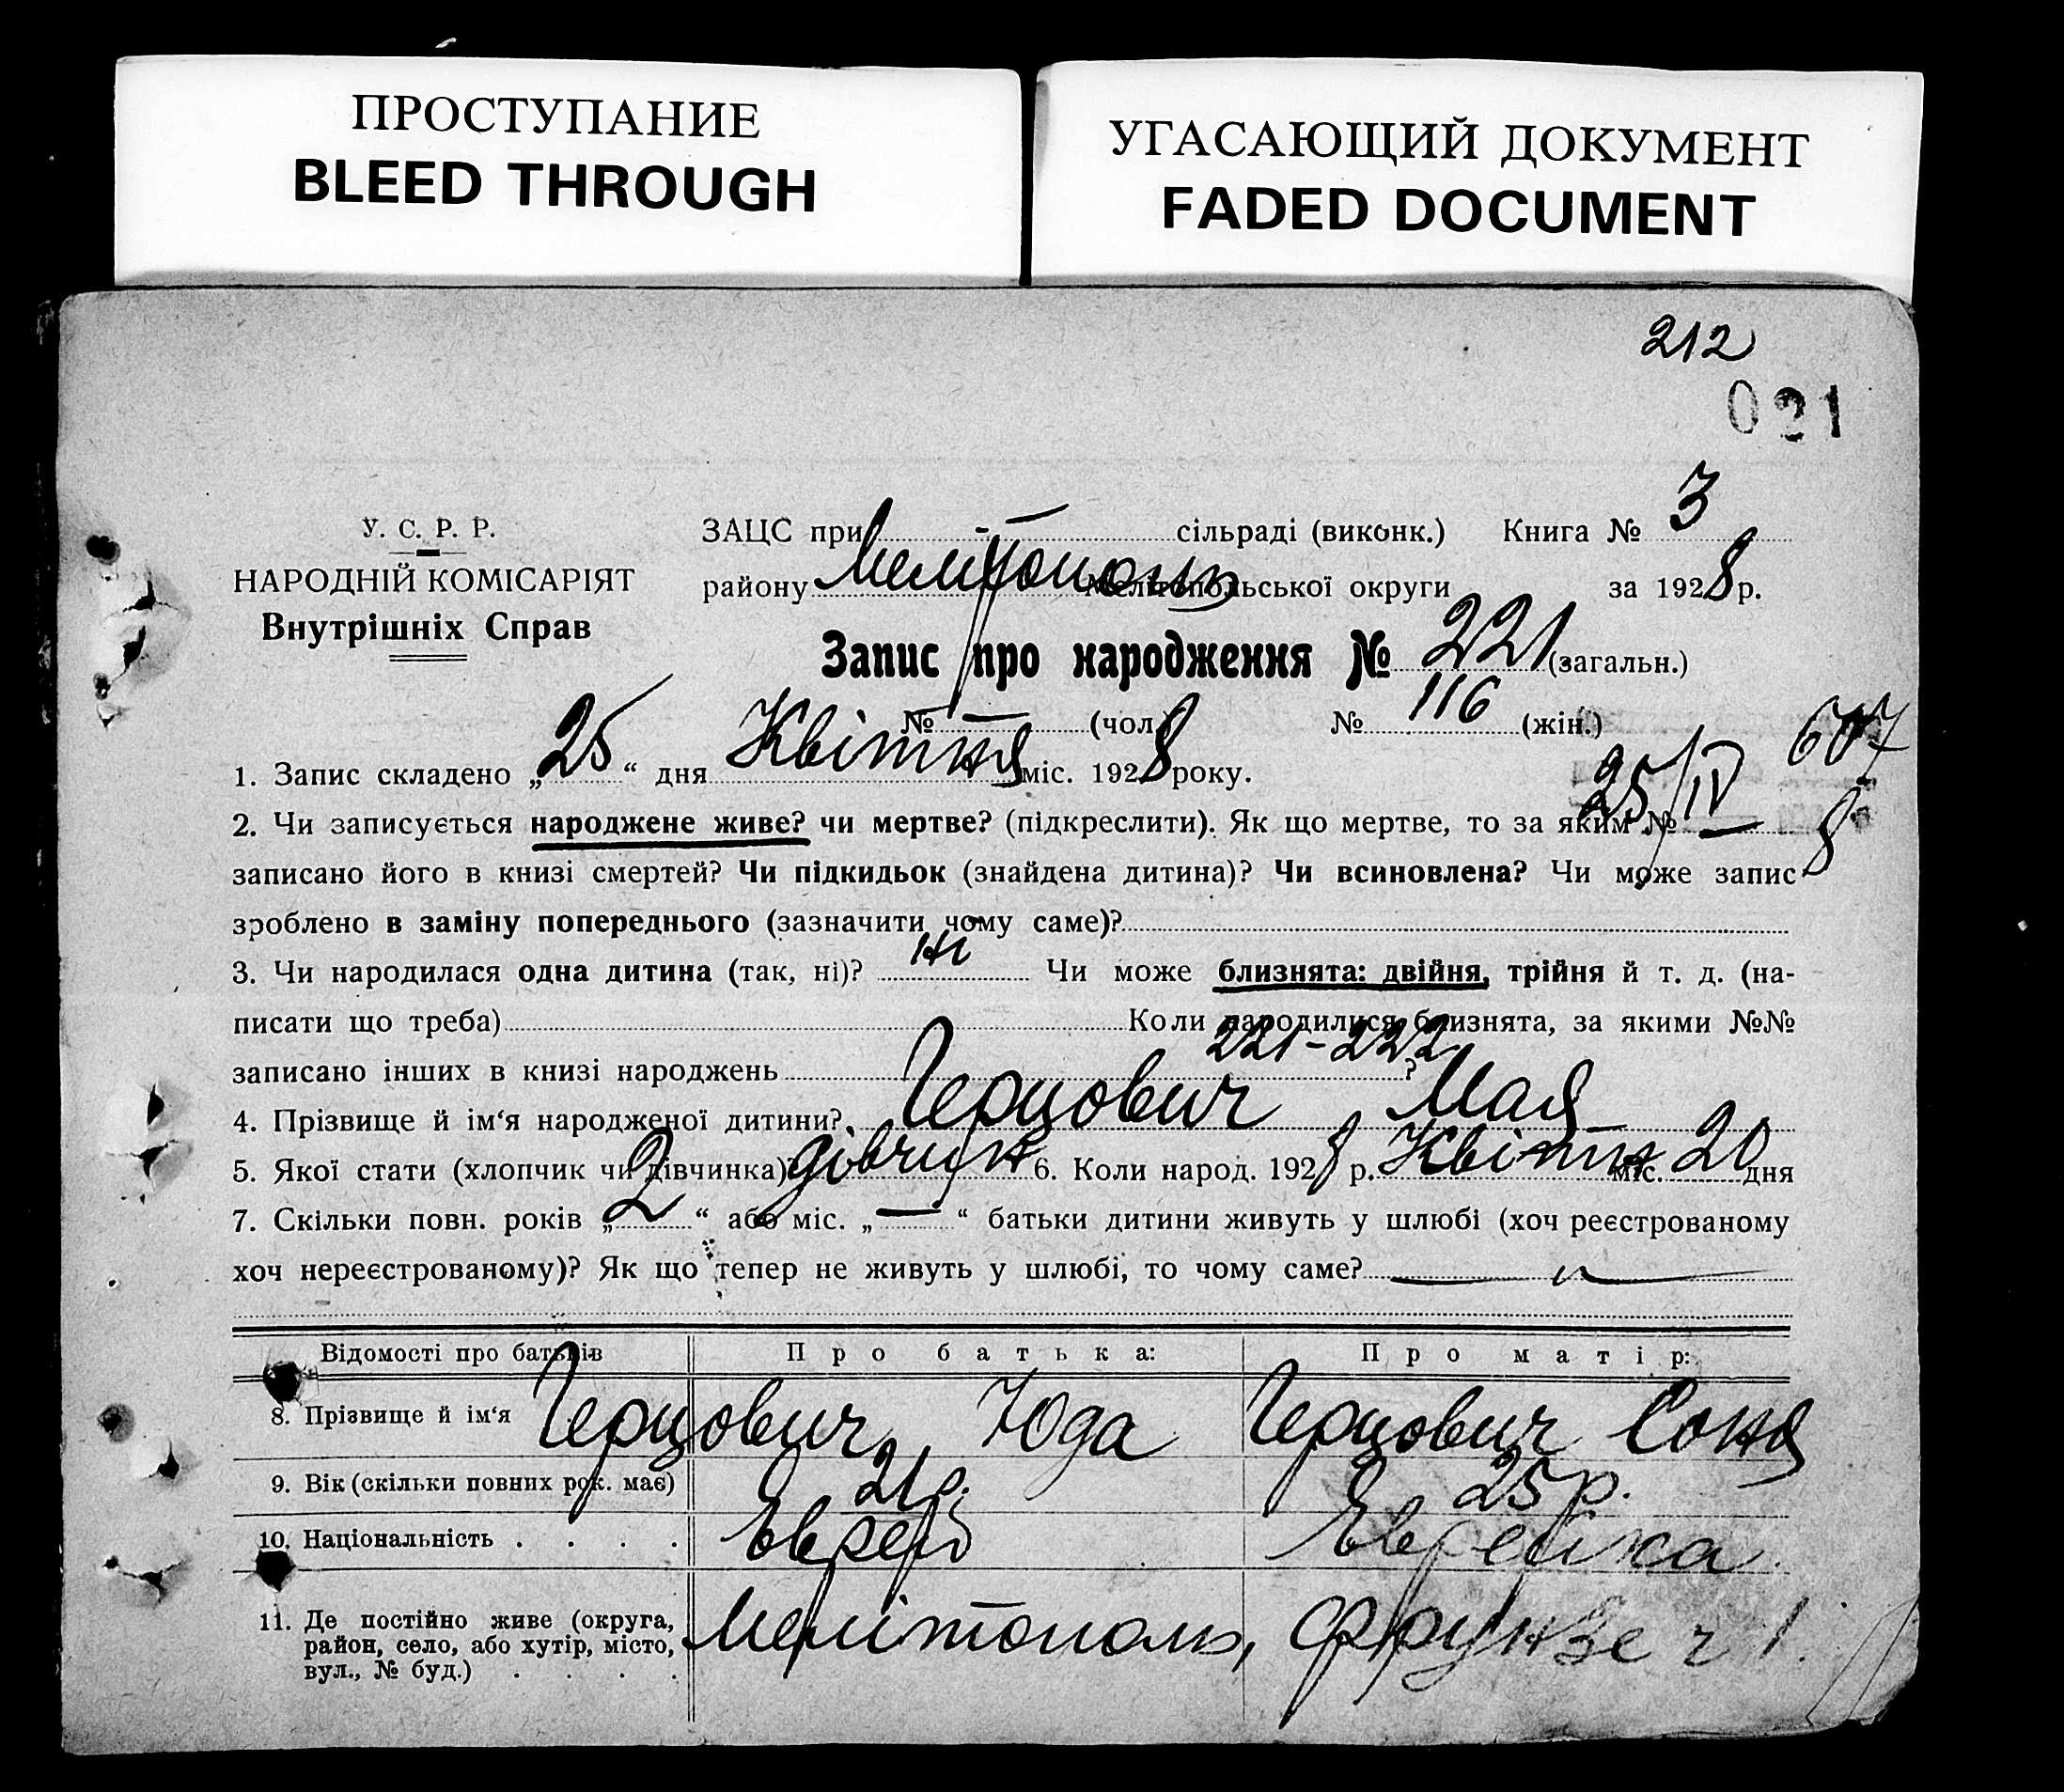 ПРОСТУПАНИЕ
BLEED THROUGH
УГАСАЮЩИЙ ДОКУМЕНТ
FADED DOCUMENT
212
021
У. С. Р. Р.
НАРОДНІЙ КОМІСАРІЯТ
Внутрішніх Справ
ЗАЦС при - — сільраді (виконк.) Книга № 3
району Мелітополь Мелітопольської округи за 1928 р.
Запис про народження № 221 (загальн.)
№ — (чол.) № 116 (жін.)
607
25/IV 8
1. Запис складено „25“ дня Квітня міс. 1928 року.
2. Чи записується народжене живе? чи мертве? (підкреслити). Як що мертве, то за яким № —
записано його в книзі смертей? Чи підкидьок (знайдена дитина)? Чи всиновлена? Чи може запис
зроблено в заміну попереднього (зазначити чому саме)?
3. Чи народилася одна дитина (так, ні)? ні Чи може близнята: двійня, трійня й т. д. (на-
писати що треба) Коли народилися близнята, за якими №№
записано інших в книзі народжень 221-222 ?
4. Прізвище й ім‘я народженої дитини? Герцович Мая
5. Якої стати (хлопчик чи дівчинка)? дівчин 6. Коли народ. 1928 р. Квітн міс. 20 дня
7. Скільки повн. років „2“ або міс. „—“ батьки дитини живуть у шлюбі (хоч реєстрованому
хоч нереєстрованому)? Як що тепер не живуть у шлюбі, то чому саме?
Відомості про батьків Про батька: Про матір:
8. Прізвище й ім‘я Герцович Юда Герцович Соня
9. Вік (скільки повних рок. має) 21 р. 25 р.
10. Національність . . . . Еврей Еврейка
11. Де постійно живе (округа,
район, село, або хутір, місто,
вул., № буд.) . . . . Мелітополь, Фрунзе ч 1.